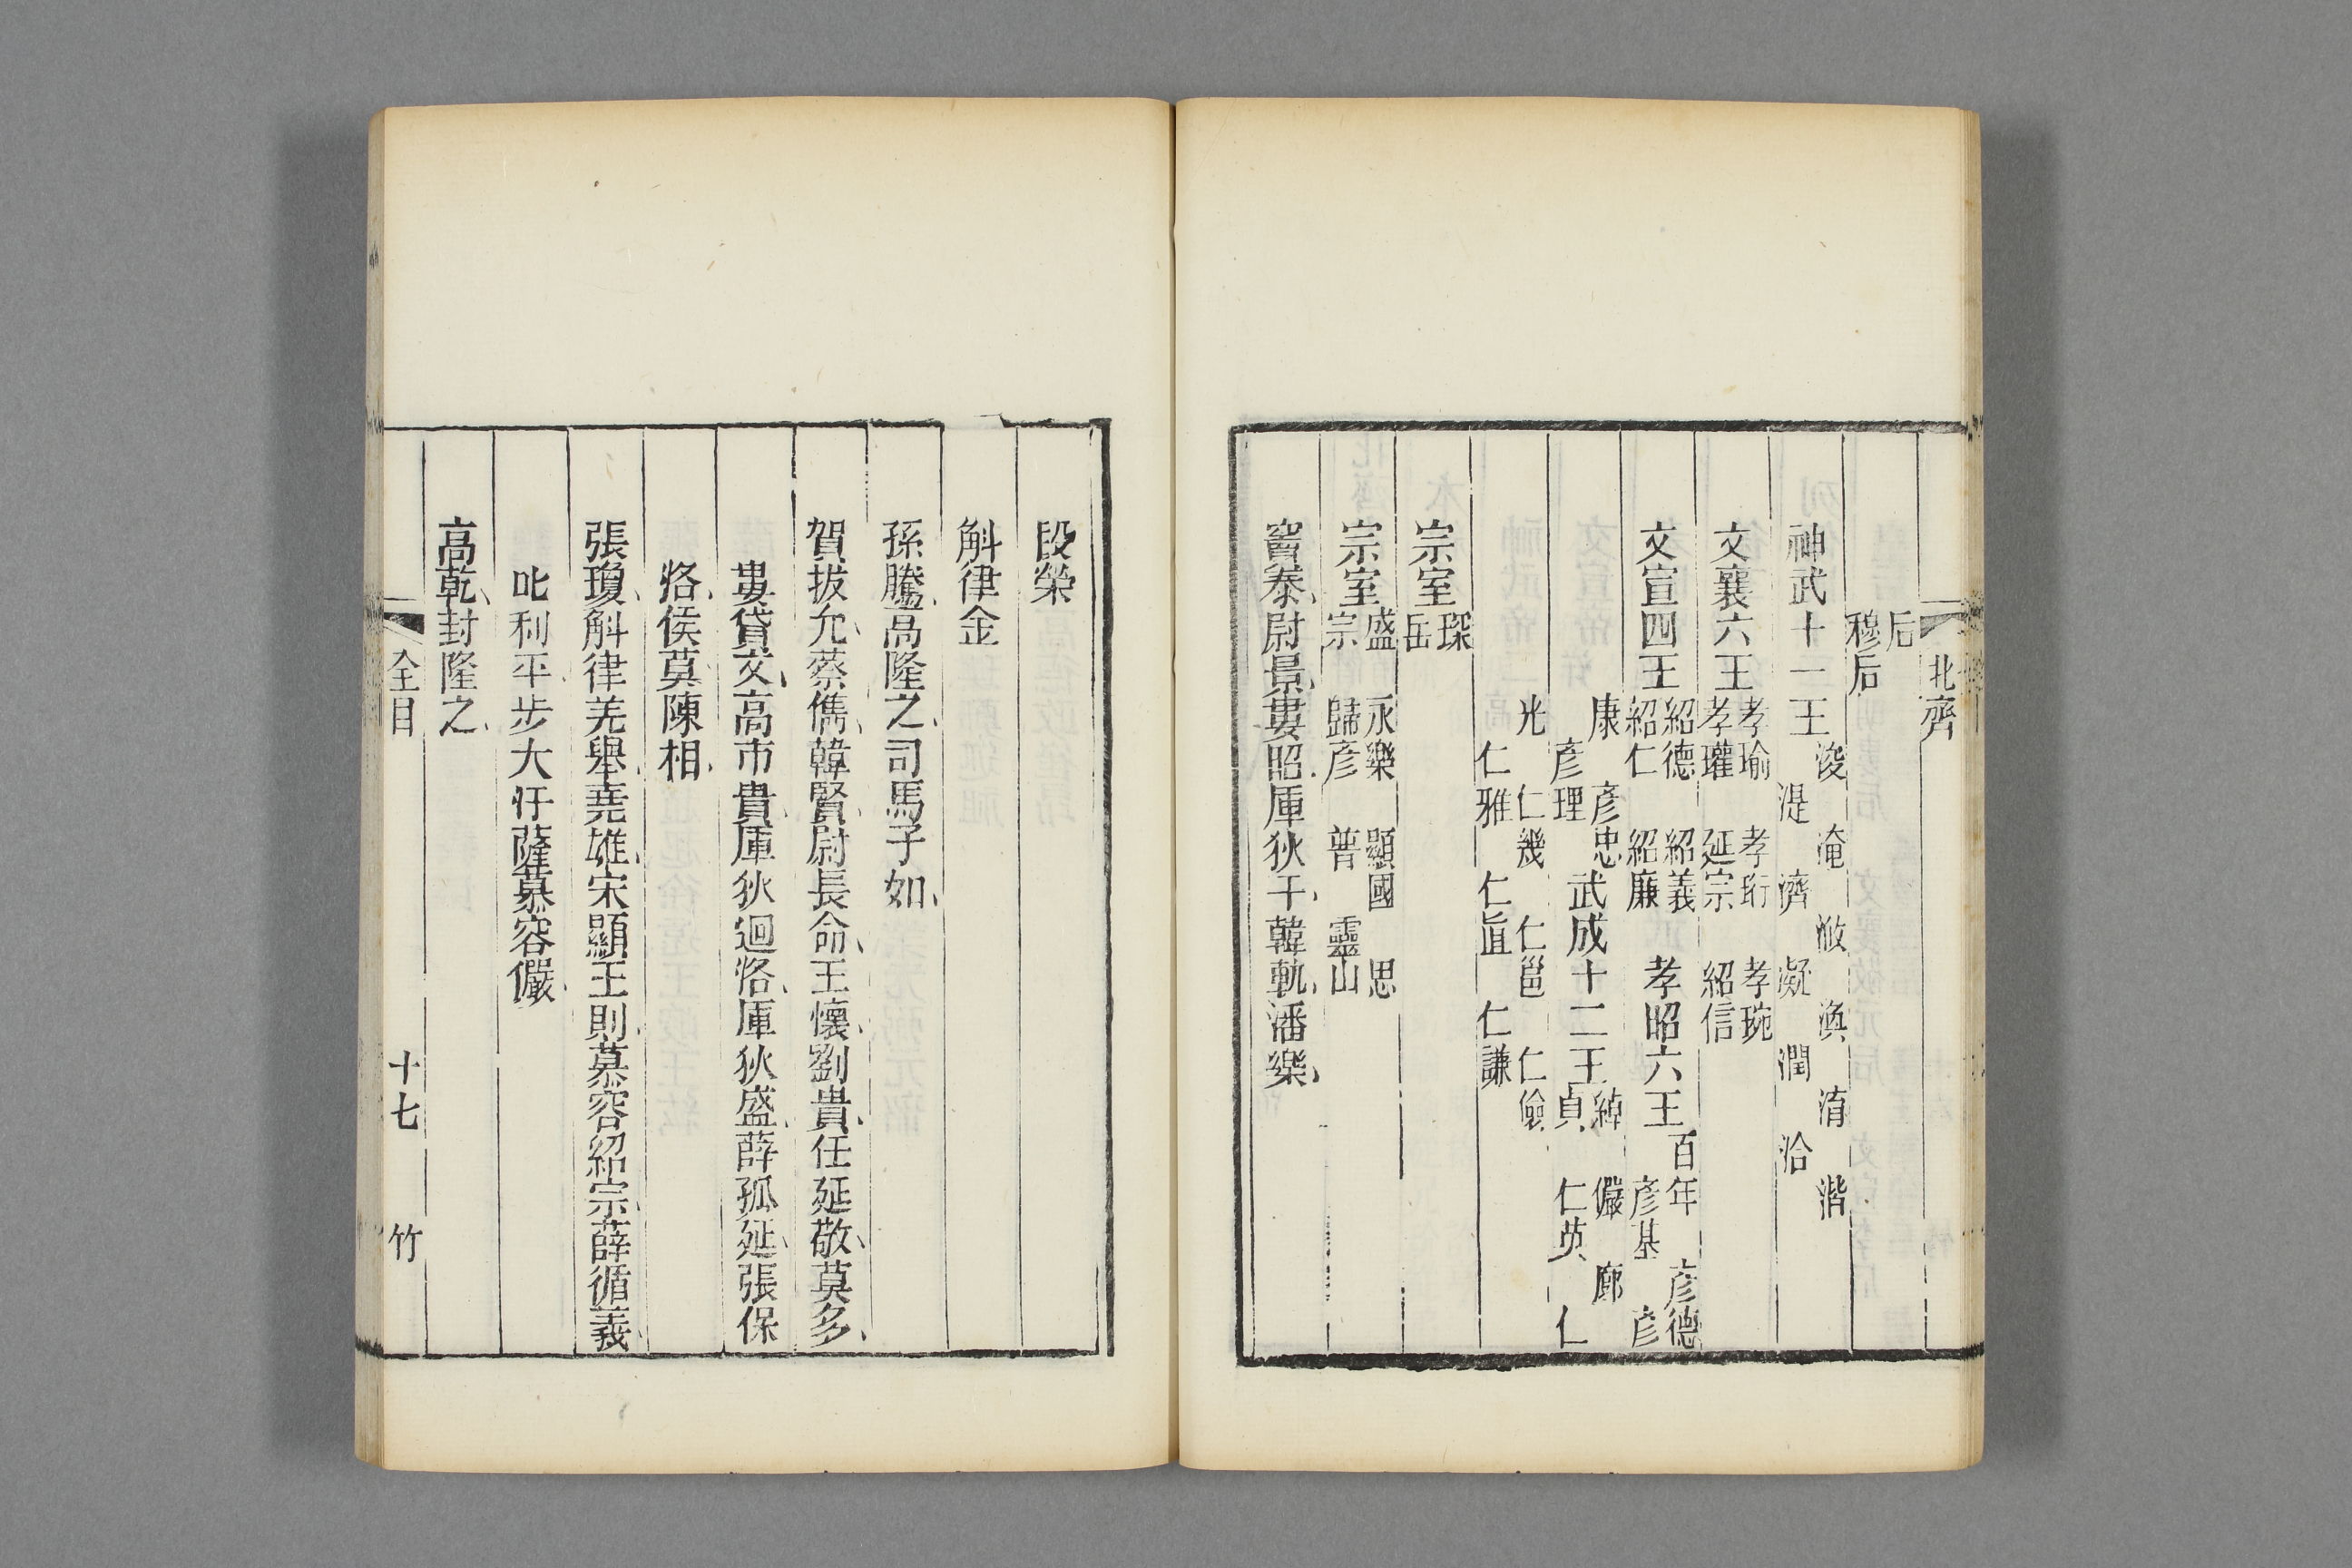 北齊
后
穆后
神武十一王
浚 淹 浟 渙 淯 湝
湜 濟 凝 潤 洽
文襄六王
孝瑜 孝珩 孝琬
孝瓘 延宗 紹信
文宣四王
紹德 紹義
紹仁 紹廉
孝昭六王
百年 彥德
彥基 彥
康 彥忠
彥理
武成十二王
綽 儼 廓
貞 仁英 仁
光 仁幾 仁邕 仁儉
仁雅 仁直 仁謙
宗室
琛
岳
宗室
盛 永樂 顯國 思
宗 歸彥 普 靈山
竇泰尉景婁昭厙狄干韓軌潘樂
段榮
斛律金
孫騰高隆之司馬子如
賀拔允蔡儁韓賢尉長命王懷劉貴任延敬莫多
婁貸文高市貴厙狄迴洛厙狄盛薛孤延張保
洛侯莫陳相
張瓊斛律羌舉堯雄宋顯王則慕容紹宗薛循義
叱利平步大汗薩慕容儼
高乾封隆之
全目 十七 竹